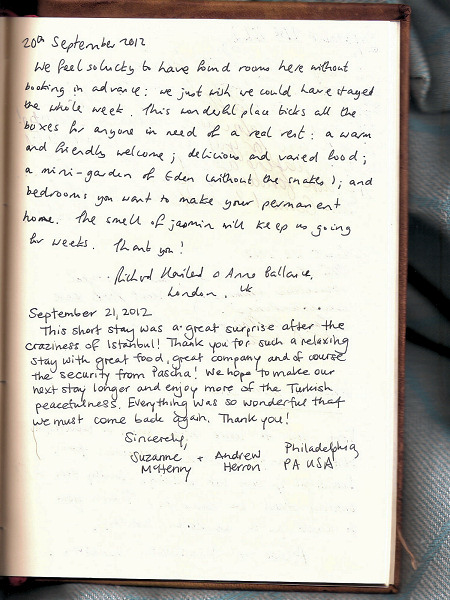 20th September 2012
We feel so lucky to have found rooms here without
booking in advance: we just wish we could have stayed
the whole week. This wonderful place ticks all the
boxes for anyone in need of a real rest: a warm
and friendly welcome; delicious and varied food;
a mini-garden of Eden (without the snakes!); and
bedrooms you want to make your permanent
home. The smell of jasmin will keep us going
for weeks. Thank you!
Richard & Anne Ballance,
London, UK
September 21, 2012
This short stay was a great surprise after the
craziness of Istanbul! Thank you for such a relaxing
stay with great food, great company and of course
the security from Pascha! We hope to make our
next stay longer and enjoy more of the Turkish
peacefulness. Everything was so wonderful that
we must come back again. Thank you!
Sincerely,
Suzanne + Andrew Philadelphia,
McHenry Herron PA USA